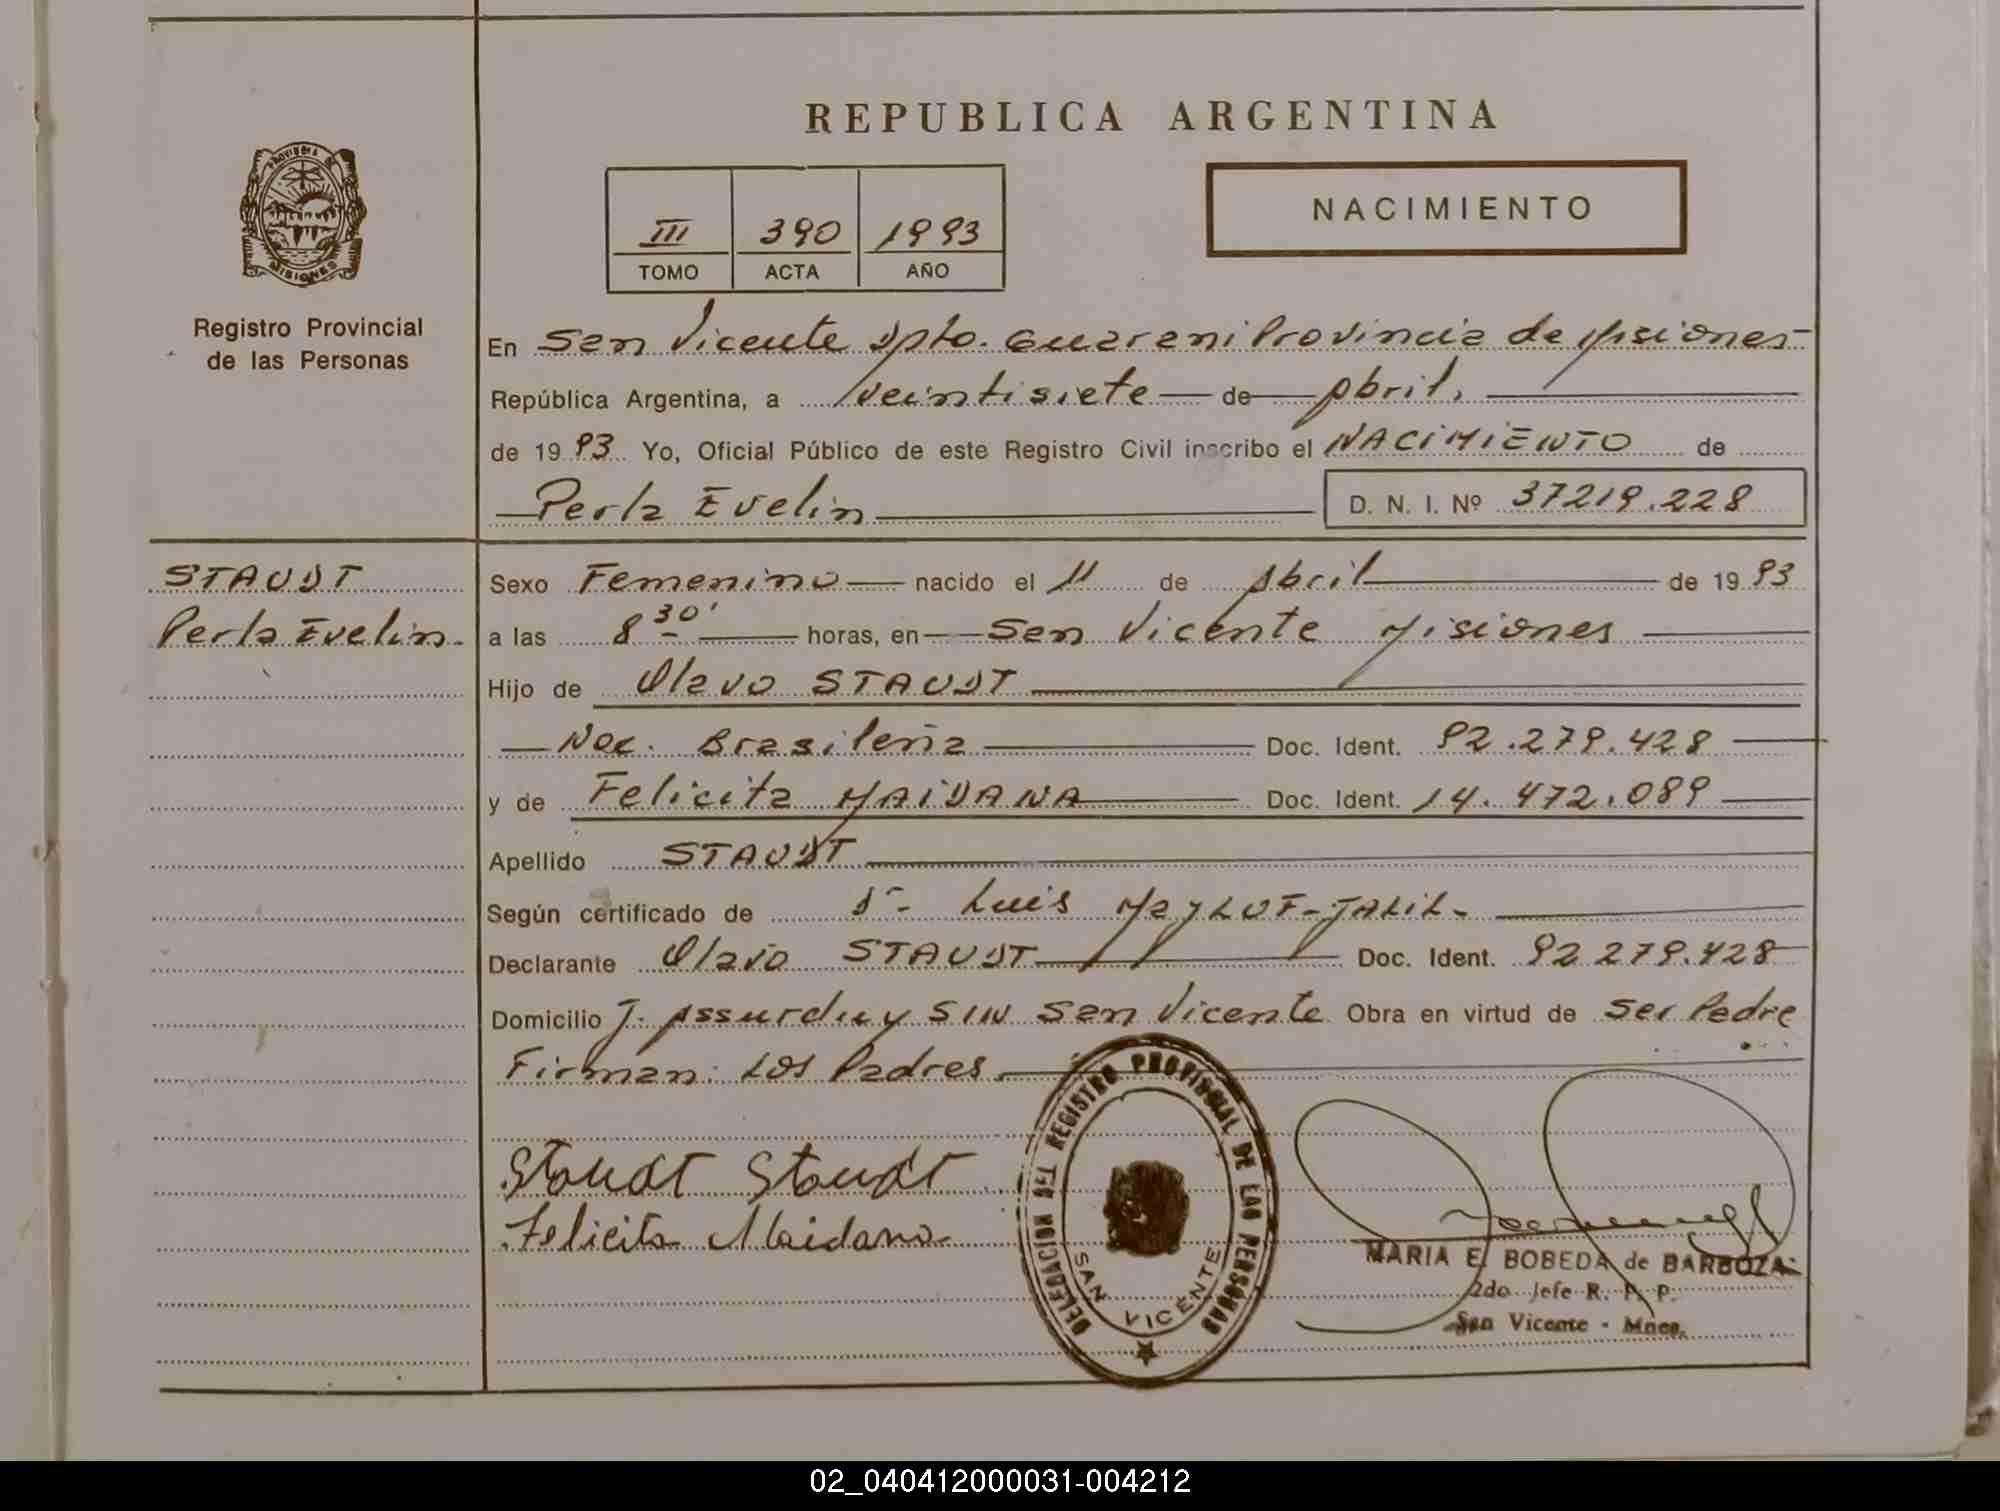 REPUBLICA ARGENTINA
PROVINCIA DE
MISIONES
III 390 1993
TOMO ACTA AÑO
NACIMIENTO
Registro Provincial
de las Personas
En San Vicente Dpto. Guarani Provincia de Misiones
República Argentina, a veintisiete de Abril,
de 1993 Yo, Oficial Público de este Registro Civil inscribo el NACIMIENTO de
Perla Evelin D. N. I. Nº 37219.228
STAUDT
Perla Evelin.
Sexo Femenino nacido el 11 de Abril de 1993
a las 8 30' horas, en San Vicente Misiones
Hijo de Olavo STAUDT
Nac. Brasileña Doc. Ident. 92.279.428
y de Felicita MAIDANA Doc. Ident. 14.472.089
Apellido STAUDT
Según certificado de Dr. Luis JALIL.
Declarante Olavo STAUDT Doc. Ident. 92.279.428
Domicilio J. Assurduy S/N San Vicente Obra en virtud de Ser Padre
Firman: Los Padres.
Staudt Staudt
Felicita Maidana
DELEGACION DEL REGISTRO PROVINCIAL DE LAS PERSONAS
SAN VICENTE
MARIA E. BOBEDA de BARBOZA
2do Jefe R. P. P.
San Vicente - Mnes.
02_040412000031-004212